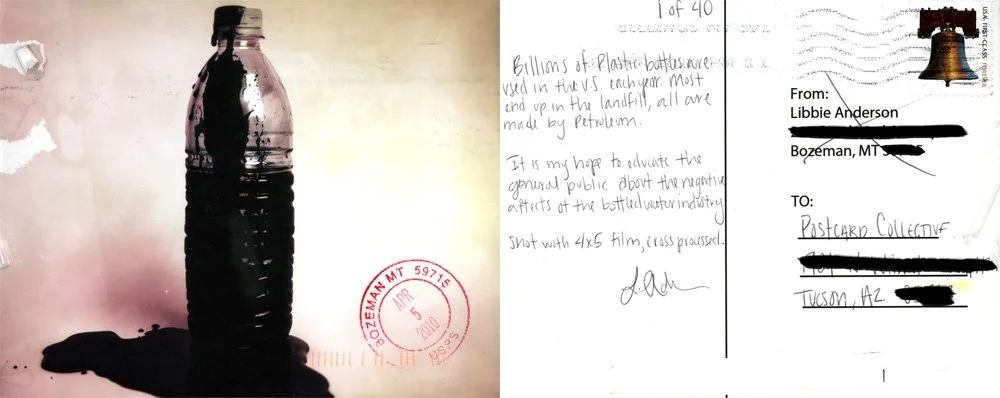 BOZEMAN MT 59715
APR
5
2010
USPS
1 of 40
Billions of Plastic bottles are
used in the U.S. each year. Most
end up in the landfill, all are
made by Petroleum.
It is my hope to educate the
general public about the negative
affects of the bottled water industry
Shot with 4x5 film, cross processed.
USA FIRST-CLASS FOREVER
From:
Libbie Anderson
Bozeman, MT
TO:
Postcard Collective
Tucson, AZ